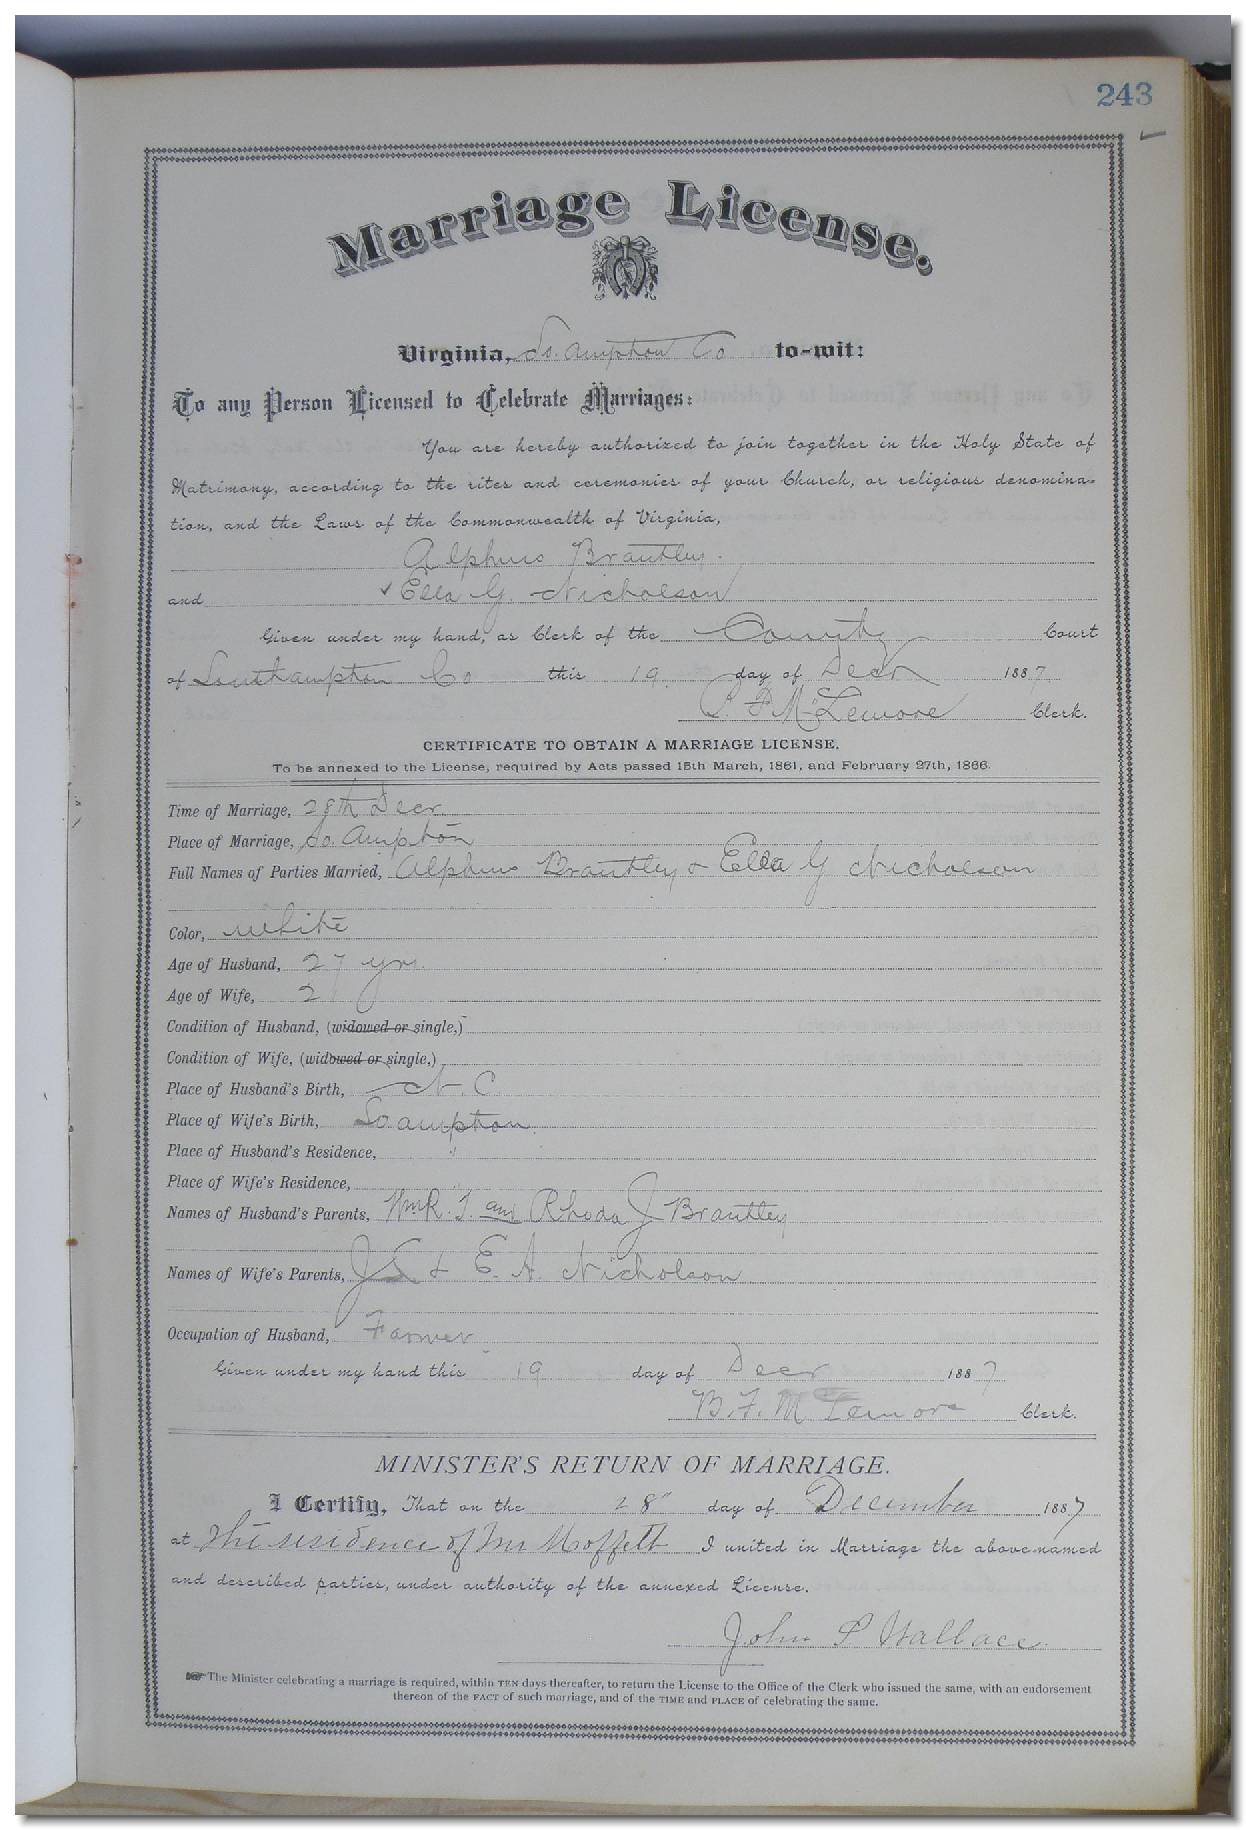 243
Marriage License.
Virginia, So. ampton Co to-wit:
To any Person Licensed to Celebrate Marriages:
You are hereby authorized to join together in the Holy State of
Matrimony, according to the rites and ceremonies of your Church, or religious denomina-
tion, and the Laws of the Commonwealth of Virginia,
Alpheus Brantley.
and Ella G. Nicholson
Given under my hand, as Clerk of the County Court
of Southampton Co this 19 day of Decr 1887
B. F. McLemore Clerk.
CERTIFICATE TO OBTAIN A MARRIAGE LICENSE,
To be annexed to the License, required by Acts passed 15th March, 1861, and February 27th, 1866.
Time of Marriage, 28th Decr
Place of Marriage, So. Ampton
Full Names of Parties Married, Alpheus Brantley & Ella G Nicholson
Color, white
Age of Husband, 27 yrs
Age of Wife, 21
Condition of Husband, (widowed or single,)
Condition of Wife, (widowed or single,)
Place of Husband's Birth, N. C
Place of Wife's Birth, So ampton
Place of Husband's Residence, "
Place of Wife's Residence, "
Names of Husband's Parents, WmR. T. and Rhoda J Brantley
Names of Wife's Parents, & E. A. Nicholson
Occupation of Husband, Farmer
Given under my hand this 19 day of Decr 1887
B. F. McLemore Clerk.
MINISTER'S RETURN OF MARRIAGE.
I Certify, That on the 28" day of December 1887
at The residence of Mr Moffett I united in Marriage the above-named
and described parties, under authority of the annexed License.
John P Wallace
The Minister celebrating a marriage is required, within TEN days thereafter, to return the License to the Office of the Clerk who issued the same, with an endorsement
thereon of the FACT of such marriage, and of the TIME and PLACE of celebrating the same.